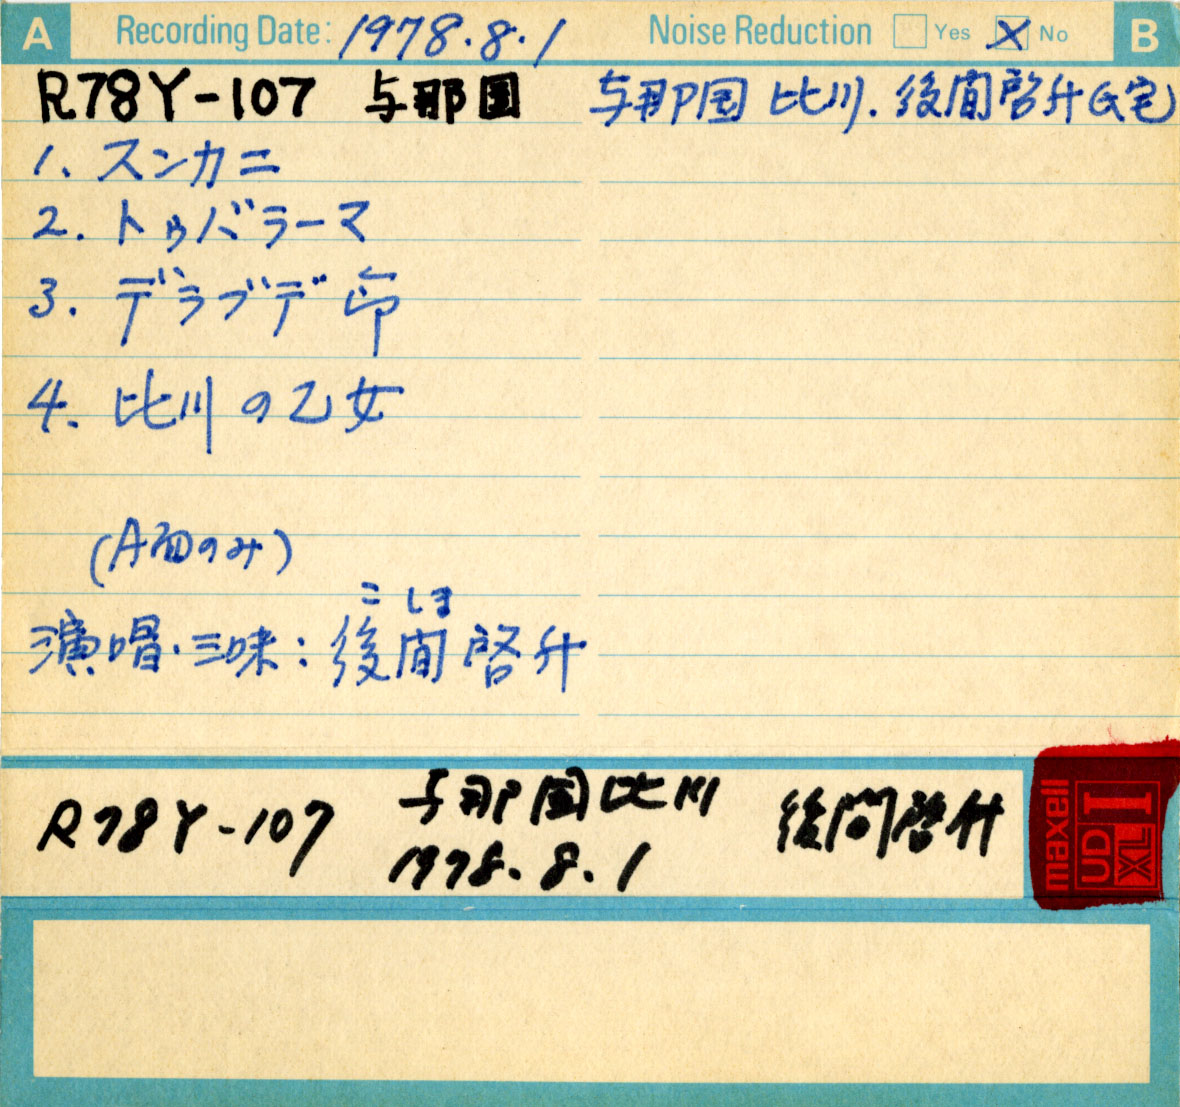 A Recording Date: 1978.8.1 Noise Reduction Yes No B
R78Y-107 与那国 与那国 比川. 後間啓升氏宅
1. スンカニ
2. トゥバラーマ
3. デラブデ節
4. 比川の乙女
(A面のみ)
こ しま
演唱・三味: 後間 啓升
R78Y-107 与那国比川 後間啓升
1978.8.1
maxell UD XL I